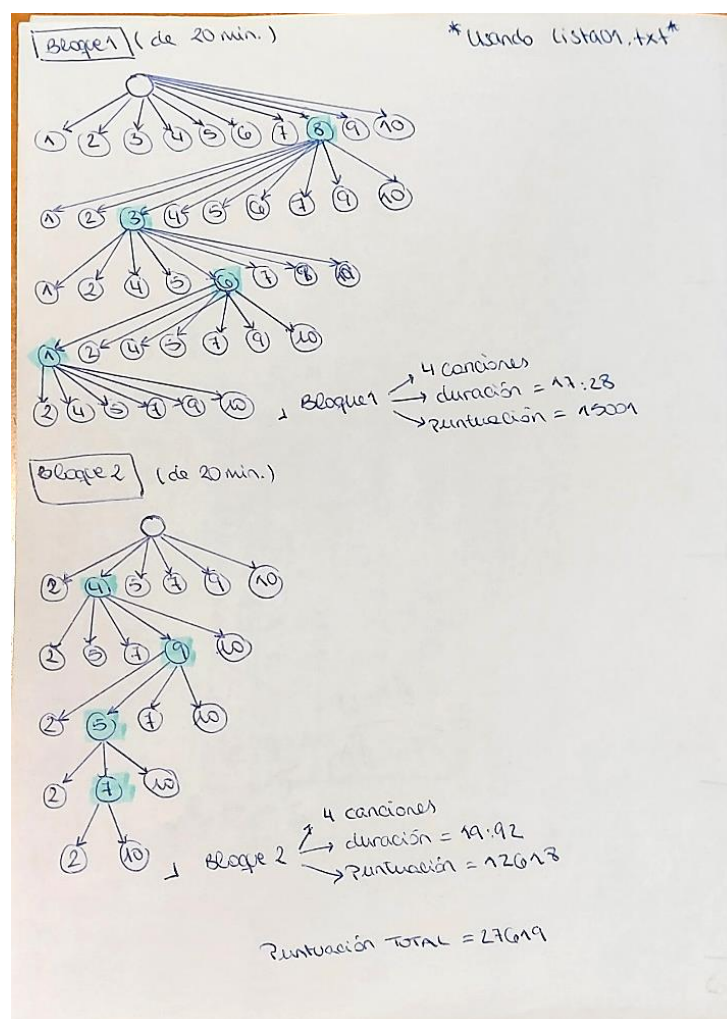 Bloque 1 (de 20 min.) *Usando Lista01.txt*
1 2 3 4 5 6 7 8 9 10
1 2 3 4 5 6 7 9 10
1 2 4 5 6 7 9 10
1 2 4 5 7 9 10
2 4 5 7 9 10
4 canciones
Bloque 1 duración = 17:28
puntuación = 15001
Bloque 2 (de 20 min.)
2 4 5 7 9 10
2 5 7 9 10
2 5 7 10
2 7 10
2 10
4 canciones
Bloque 2 duración = 19:92
Puntuación = 12618
Puntuación TOTAL = 27619